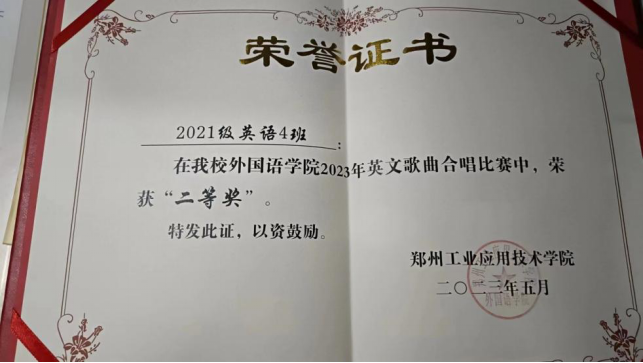 荣誉证书
2021级英语4班：
在我校外国语学院2023年英文歌曲合唱比赛中，荣
获“二等奖”。
特发此证，以资鼓励。
郑州工业应用技术学院
二〇二三年五月
外国语学院